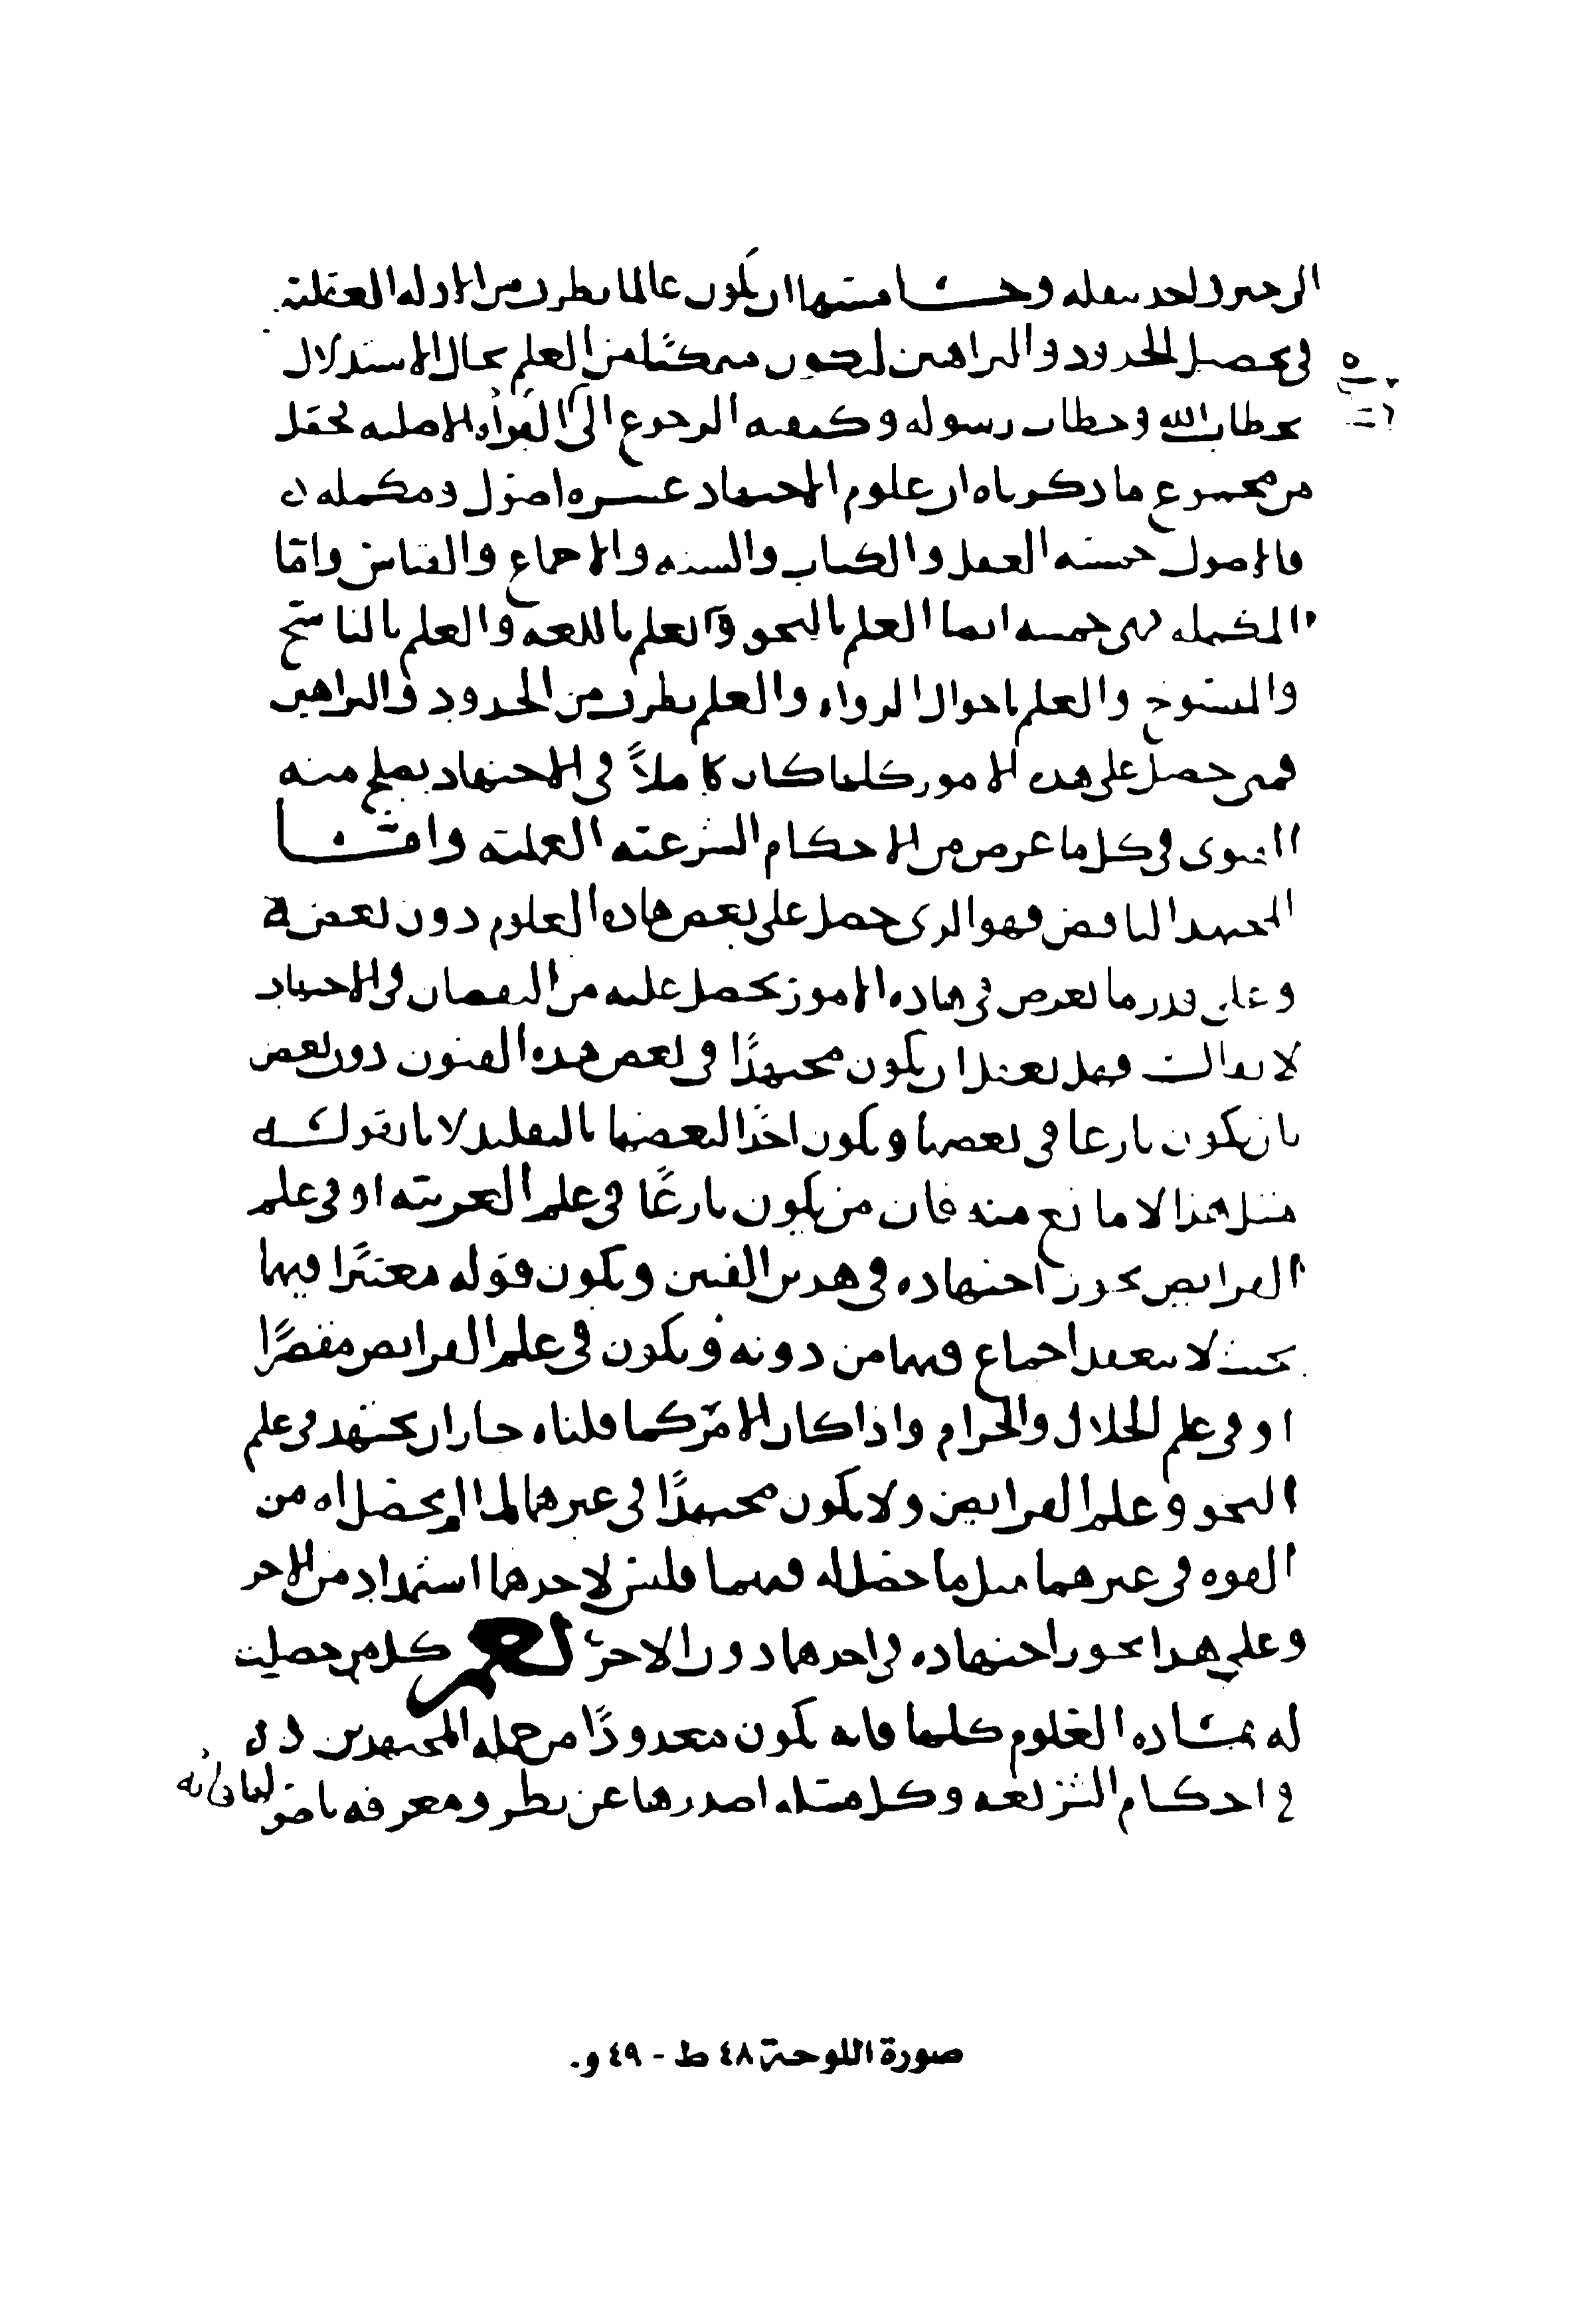 الى خبر واحد ينقله وخامستها ان يكون عالما بطرف من الادلة العقلية
في تحصيل الحدود والبراهين ليكون متمكنا من العلم بحال الاستدلال
بخطاب الله وخطاب رسوله وكيفية الرجوع الى الاصلية
من مجموع ما ذكرناه ان علوم الاجتهاد عشرة اصول ومكملة
فالاصول خمسة العقل والكتاب والسنه والاجماع والقياس واما
المكملة فهى خمسة ايضا العلم بالنحو والعلم باللغه والعلم بالناسخ
والمنسوخ والعلم باحوال الرواه والعلم بطرف من الحدود والبراهين
فمتى حصل على هذه الامور كلها كان كاملاً في الاجتهاد يصلح منه
الفتوى في كل ما عرض من الاحكام الشرعية العملية وامّا
المجتهد الناقص فهو الذى حصل على بعض هاذه العلوم دون بعضه
وعلى قدر ما نعرض في هاذه الامور يحصل عليه من النقصان في الاجتهاد
لا يقال فهل يعقل ان يكون مجتهدًا في بعض هذه الفنون دون بعض
بان يكون بارعا في بعضها ويكون اخذا لبعضها بالتقليد لانا نقول
مثل هذا لا مانع منه فان من يكون بارعًا في علم العربية او في علم
الفرايض يجوز اجتهاده في هذين الفنين ويكون قوله معتبرًا فيهما
بحيث لا ينعقد اجماع فيهما من دونه ويكون في علم الفرايض مقصرًا
او في علم الحلال والحرام واذا كان الامر كما قلناه جاز ان يجتهد في علم
النحو وعلم الفرايض ولا يكون مجتهدًا في غيرهما لما لم يحصل له من
القوه في غيرهما مثل ما حصل له فيهما فليس لاحدهما استمداد من الاخر
وعلى هذا يجوز اجتهاده في احدهما دون الاخر نعم كل من حصلت
له هاذه العلوم كلها فانه يكون معدودًا من جملة المجتهدين
في احكام الشريعه وكل مسئلة اصدرها عن نظر ومعرفه باصولها فانه
صورة اللوحة ٤٨ ط - ٤٩ و.